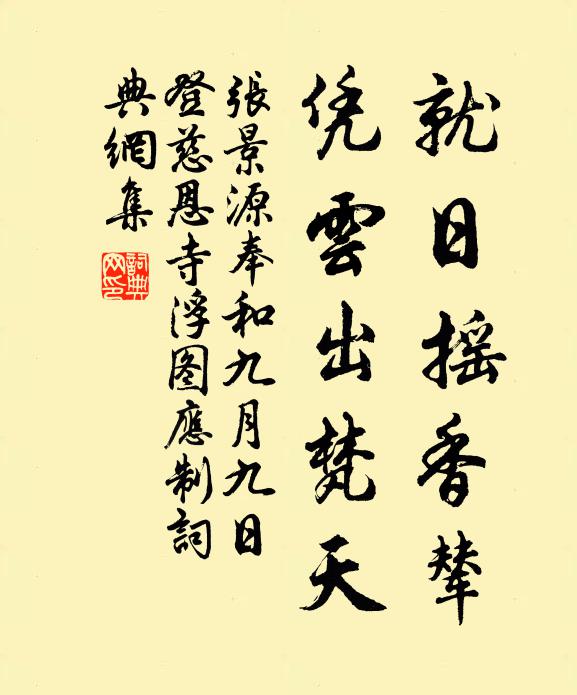 就日摇香輦
凭雲出梵天
張景源奉和九月九日
登慈恩寺浮图應制詞
典網集
詞典网印